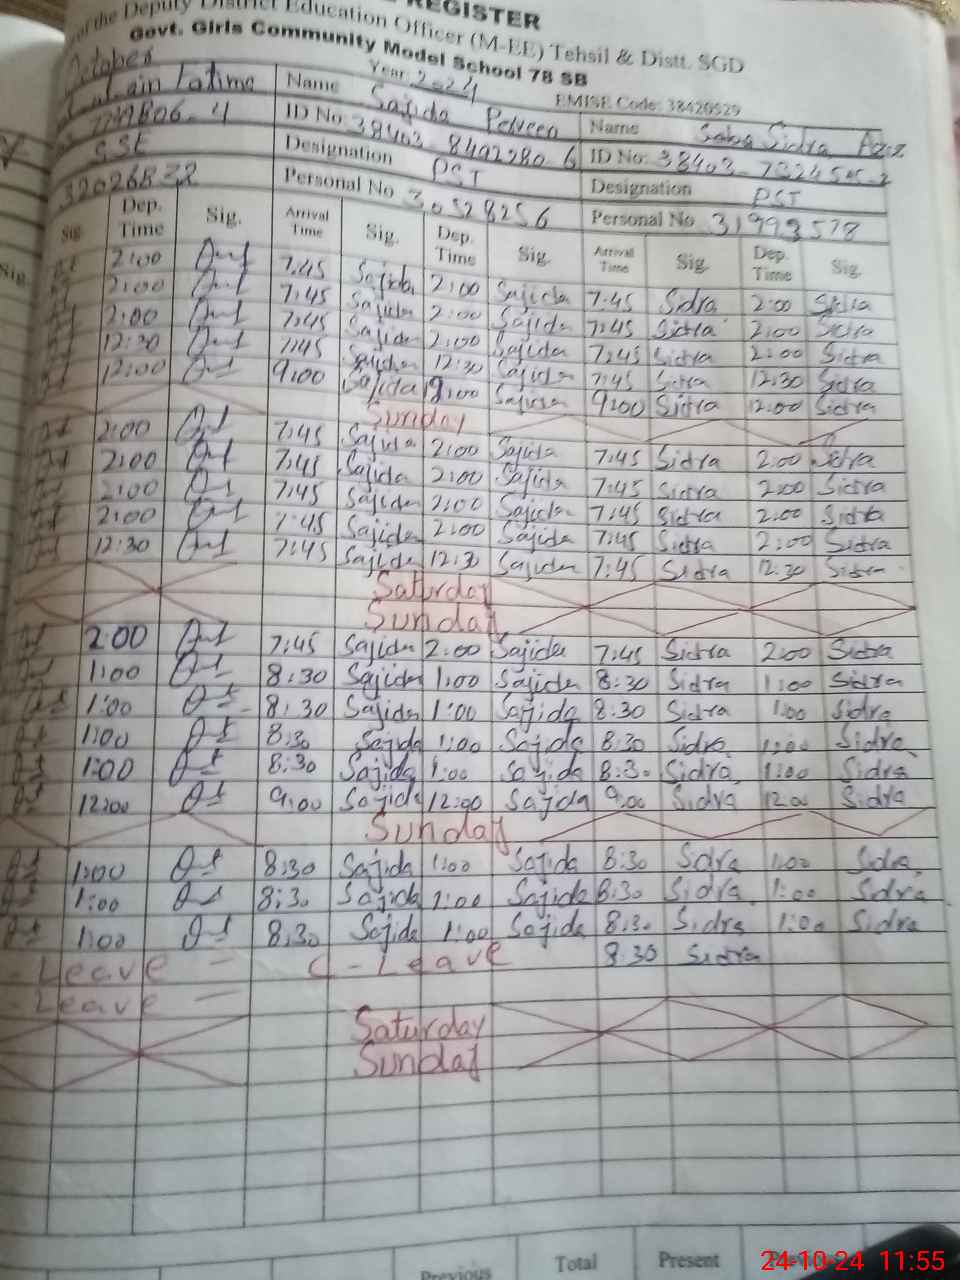 REGISTER
of the Deputy District Education Officer (M-EE) Tehsil & Distt. SGD
Govt. Girls Community Model School 78 SB
October Year: 2024 EMISE Code: 38420529
Name Sajida Perveen Name Saba Sidra Aziz
ID No: 38403-8492280-6 ID No:
SST Designation PST Designation PST
Personal No 30528256 Personal No 31993578
Sig. Dep. Time Sig. Arrival Time Sig. Dep. Time Sig. Arrival Time Sig. Dep. Time Sig.
2:00 7:45 Sajida 2:00 Sajida 7:45 Sidra 2:00 Sidra
2:00 7:45 Sajida 2:00 Sajida 7:45 Sidra 2:00 Sidra
2:00 7:45 Sajida 2:00 Sajida 7:45 Sidra 2:00 Sidra
12:30 7:45 Sajida 12:30 Sajida 7:45 Sidra 12:30 Sidra
12:00 9:00 Sajida Sajida 9:00 Sidra 12:00 Sidra
Sunday
2:00 7:45 Sajida 2:00 Sajida 7:45 Sidra 2:00 Sidra
2:00 7:45 Sajida 2:00 Sajida 7:45 Sidra 2:00 Sidra
2:00 7:45 Sajida 2:00 Sajida 7:45 Sidra 2:00 Sidra
2:00 7:45 Sajida 2:00 Sajida 7:45 Sidra 2:00 Sidra
12:30 7:45 Sajida 12:30 Sajida 7:45 Sidra 12:30 Sidra
Saturday
Sunday
2:00 7:45 Sajida 2:00 Sajida 7:45 Sidra 2:00 Sidra
1:00 8:30 Sajida 1:00 Sajida 8:30 Sidra 1:00 Sidra
1:00 8:30 Sajida 1:00 Sajida 8:30 Sidra 1:00 Sidra
1:00 8:30 Sajida 1:00 Sajida 8:30 Sidra 1:00 Sidra
1:00 8:30 Sajida 1:00 Sajida 8:30 Sidra 1:00 Sidra
12:00 9:00 Sajida 12:00 Sajida 9:00 Sidra 12:00 Sidra
Sunday
1:00 8:30 Sajida 1:00 Sajida 8:30 Sidra 1:00 Sidra
1:00 8:30 Sajida 1:00 Sajida 8:30 Sidra 1:00 Sidra
1:00 8:30 Sajida 1:00 Sajida 8:30 Sidra 1:00 Sidra
- Leave - C - Leave 8:30 Sidra
- Leave -
Saturday
Sunday
Previous Total Present
24-10-24 11:55